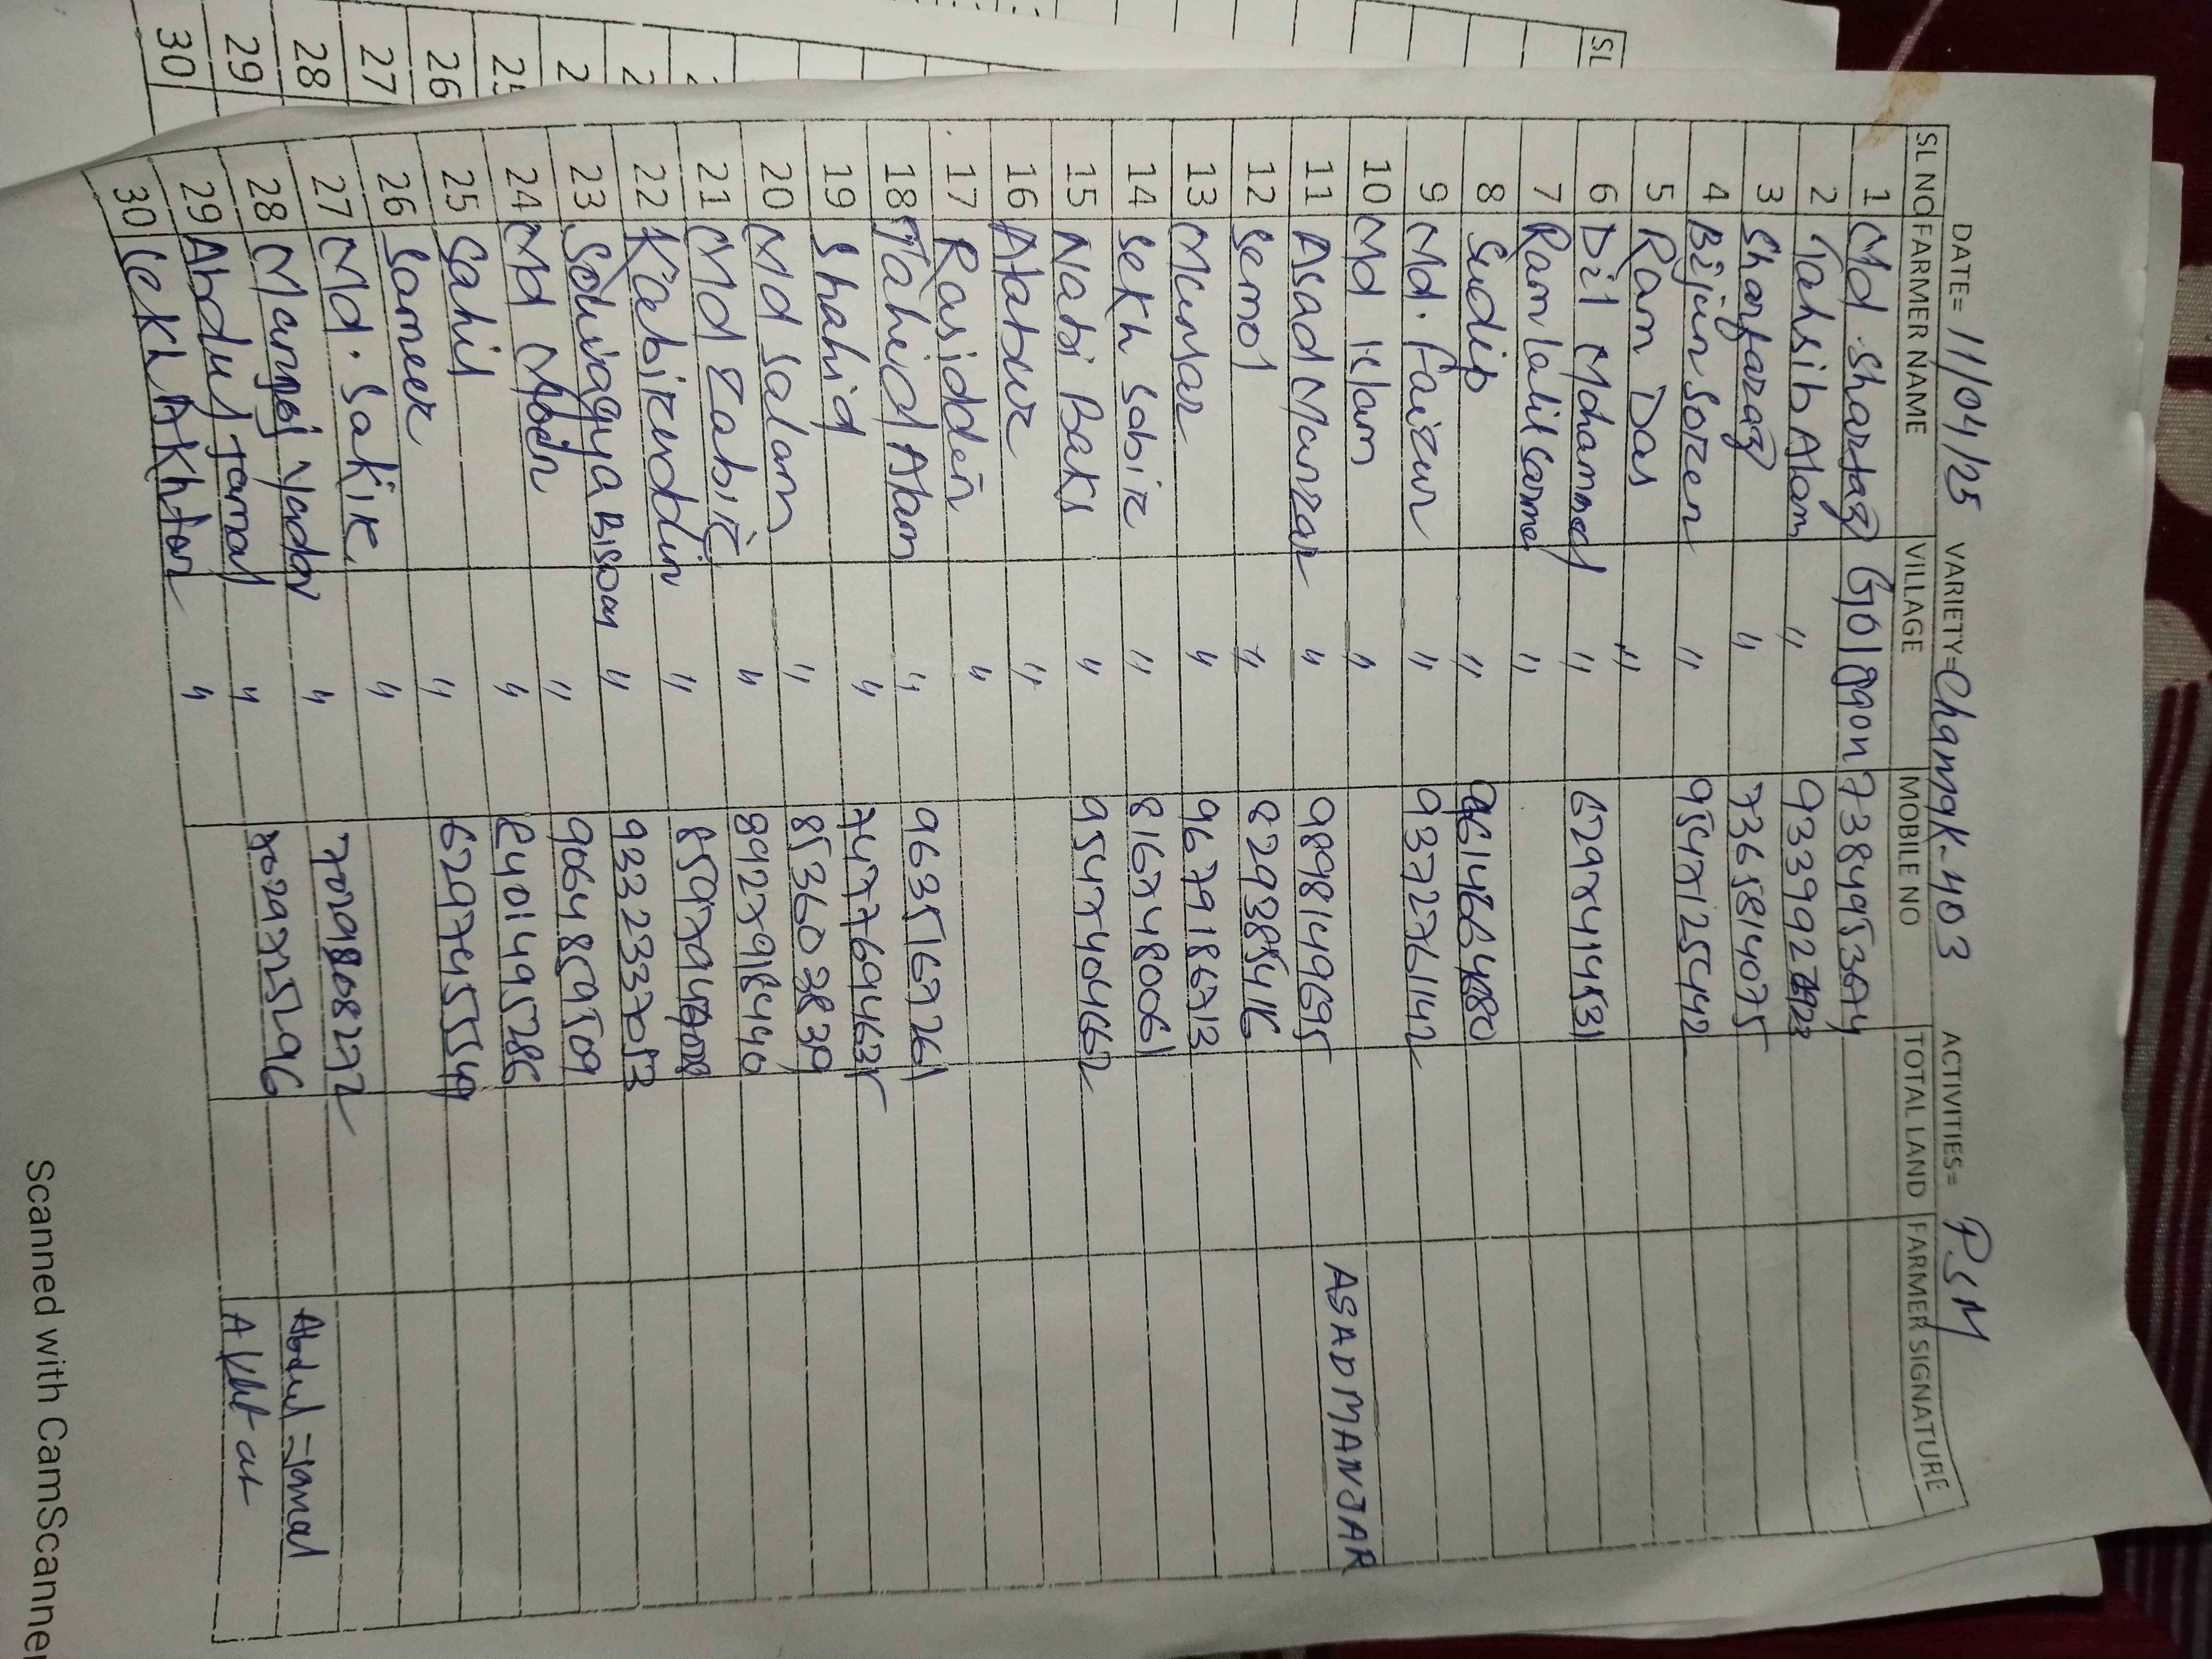 DATE= 11/04/25 VARIETY= Chamak-403 ACTIVITIES= PSM
SL NO FARMER NAME VILLAGE MOBILE NO TOTAL LAND FARMER SIGNATURE
1 Md. Sharfaz Golgon 7384953674
2 Tahsib Alam " 9339927723
3 Sharfaraz " 7365814075
4 Bijun Soren " 9547125442
5 Ram Das "
6 Dil Mohammed " 6297414531
7 Ram lalil Sarma "
8 Sudip " 9614664680
9 Md. Faizur " 9372761142
10 Md Islam "
11 Asad Manzar " 9898149695 ASADMANJAR
12 Semol " 829385416
13 Munsar " 9679186713
14 Sekh Sabir " 8167480061
15 Nabi Baks " 9547404662
16 Atabur "
17 Rasidden "
18 Taheid Alam " 9635169261
19 Shahid " 7477694635
20 Md Salam " 8536038839
21 Md Zabir " 8927918440
22 Kabiruddin "
23 Bison " 9332337053
24 Md Moin " 9064859509
25 Sahil " 8401495286
26 Sameer " 6297455549
27 Md. Sakir "
28 Mangoj Yadav " 7029808272
29 Abdul Jamal " 7029725296 Abdul Jamal
30 Sekh Akhtar " Akhtar
SL
25
26
27
28
29
30
Scanned with CamScanner